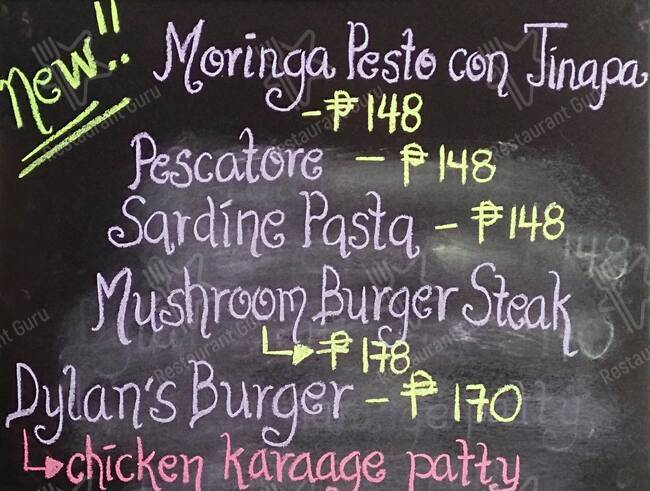 New!!
Moringa Pesto con Tinapa
- ₱148
Pescatore - ₱148
Sardine Pasta - ₱148
Mushroom Burger Steak
₱178
Dylan's Burger - ₱170
chicken karaage patty